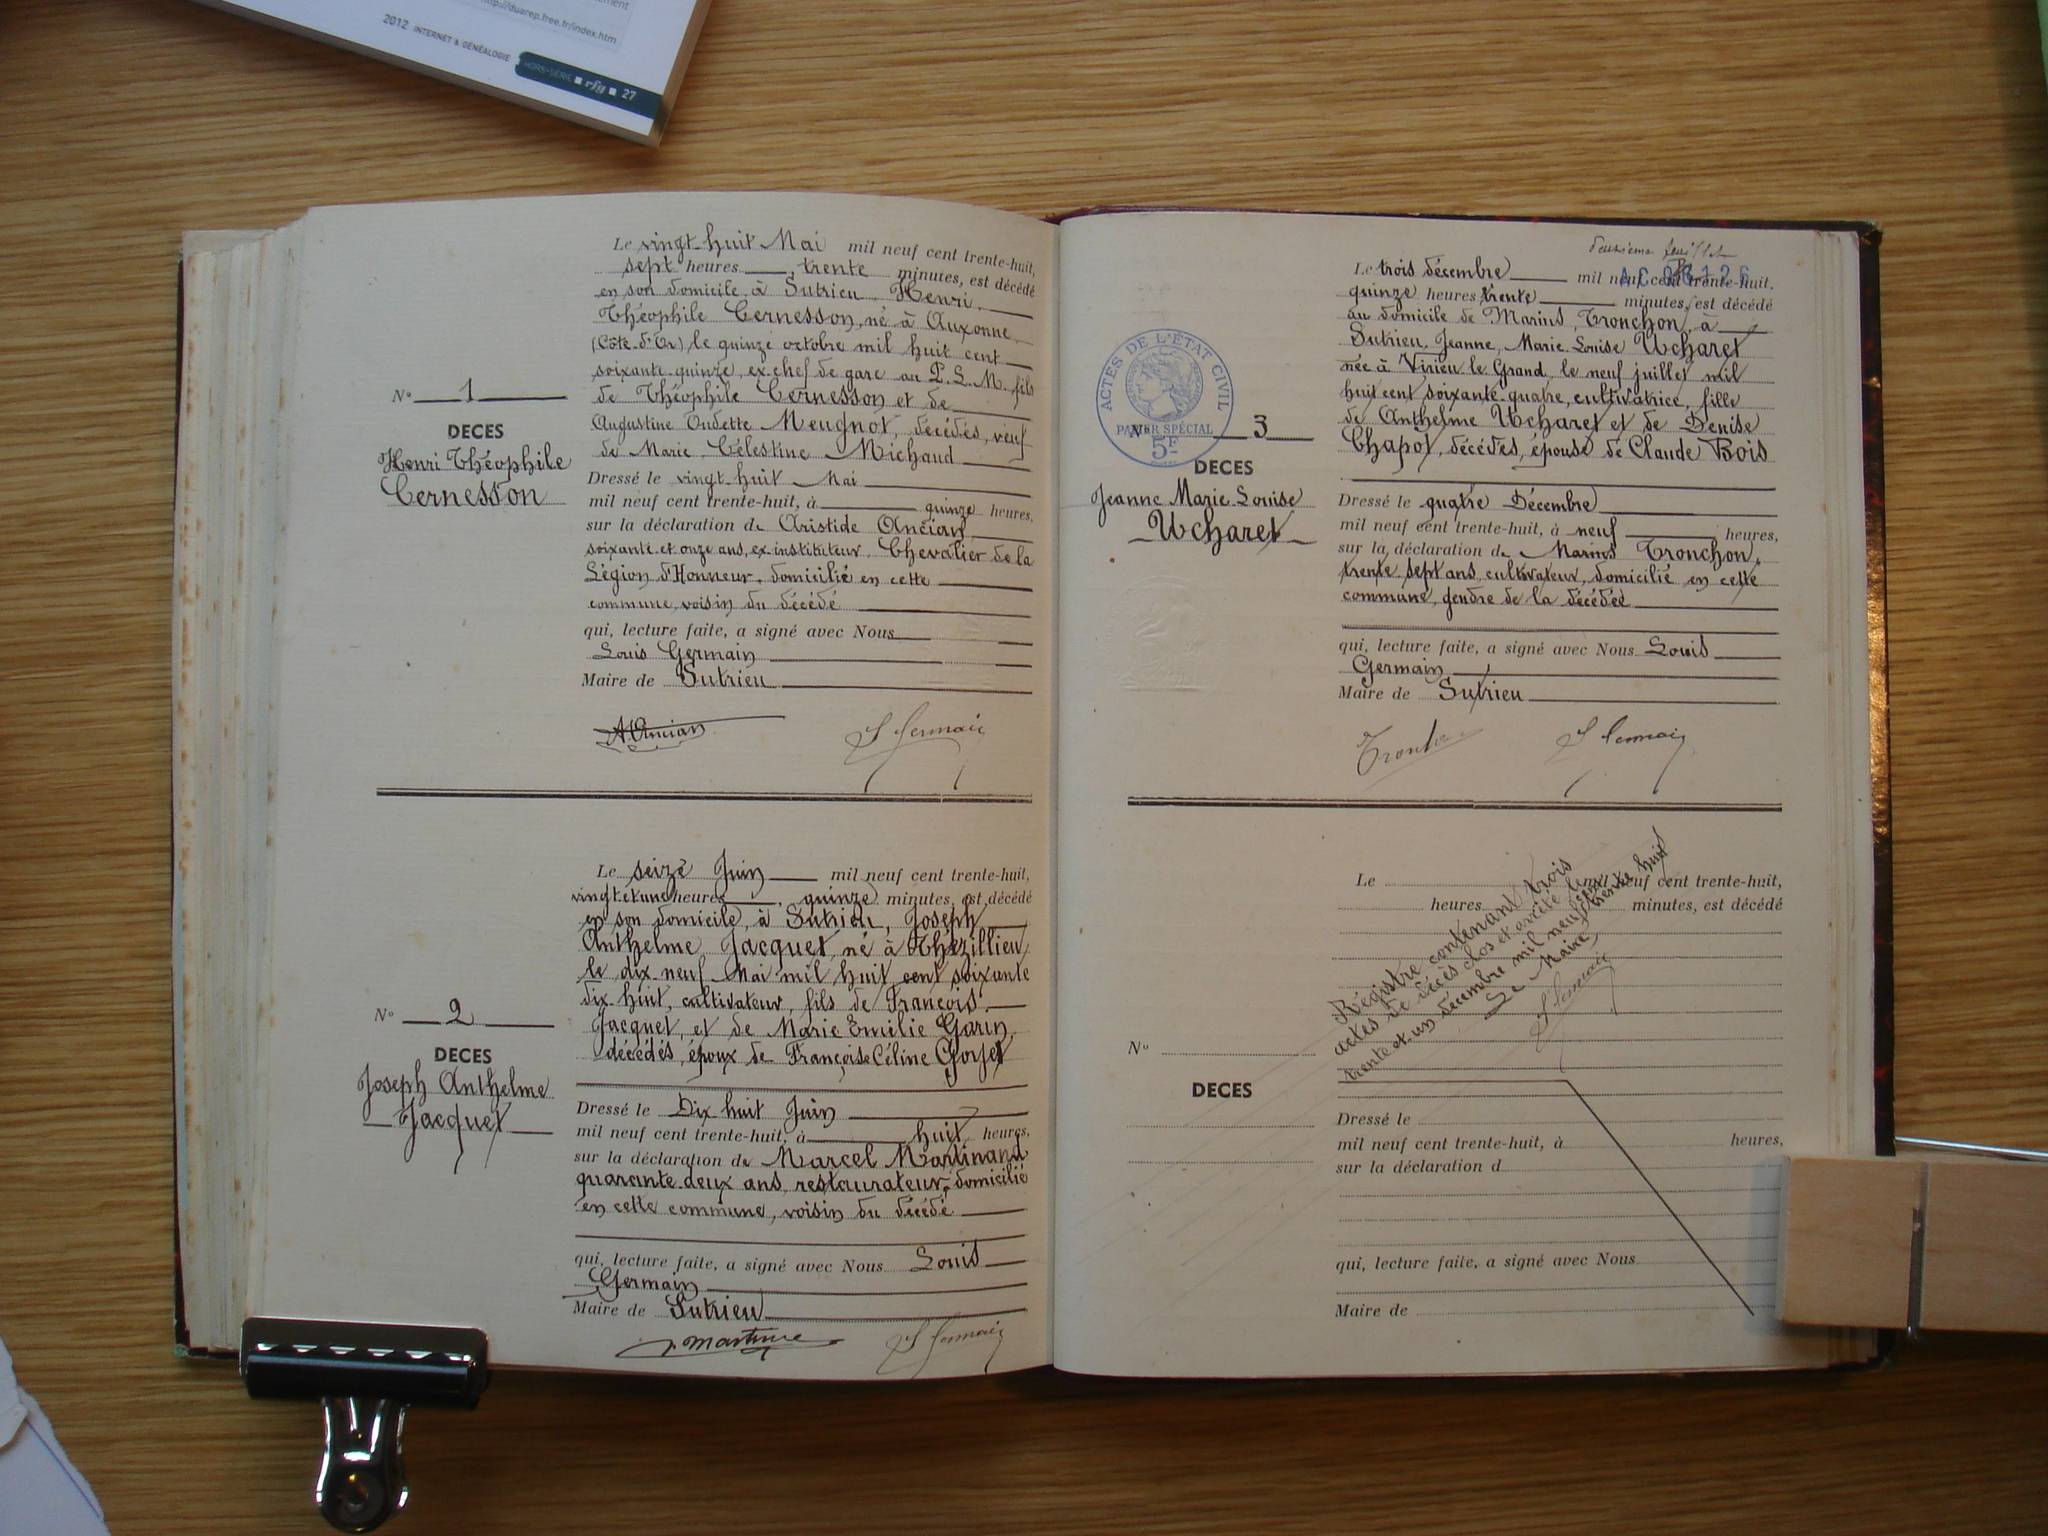 http://duarep.free.fr/index.htm
2012 INTERNET & GÉNÉALOGIE HORS-SÉRIE rfg 27
Le vingt-huit Mai mil neuf cent trente-huit,
sept heures, trente minutes, est décédé
en son domicile à Sutrieu, Henri,
Théophile Cernesson, né à Auxonne,
(Côte-d'Or) le quinze octobre mil huit cent
soixante-quinze, ex chef de gare au P.L.M. fils
de Théophile Cernesson et de
Augustine Oudette Meugnot, décédés, veuf
de Marie, Célestine Michaud
N° 1
DECES
Henri Théophile
Cernesson
Dressé le vingt-huit Mai
mil neuf cent trente-huit, à quinze heures,
sur la déclaration de Aristide Ancian,
soixante et onze ans, ex-instituteur, Chevalier de la
Légion d'Honneur, domicilié en cette
commune, voisin du décédé
qui, lecture faite, a signé avec Nous
Louis Germain
Maire de Sutrieu
AAncian L Germain
Le seize Juin mil neuf cent trente-huit,
vingt et une heures, quinze minutes, est décédé
en son domicile, à Sutrieu, Joseph
Anthelme Jacquet, né à Thézillieu
le dix-neuf Mai mil huit cent soixante
dix-huit, cultivateur, fils de François
Jacquet, et de Marie Emélie Garin,
décédés, époux de Françoise Céline Goyet
N° 2
DECES
Joseph Anthelme
Jacquet
Dressé le Dix huit Juin
mil neuf cent trente-huit, à huit heures,
sur la déclaration de Marcel Martinand
quarante-deux ans, restaurateur, domicilié
en cette commune, voisin du décédé
qui, lecture faite, a signé avec Nous Louis
Germain
Maire de Sutrieu
L Germain
deuxième feuillet
Le trois décembre mil neuf cent trente-huit,
quinze heures trente minutes, est décédé
au domicile de Marius, Tronchon, à
Sutrieu, Jeanne, Marie-Louise Ucharet
née à Virieu le Grand, le neuf juillet mil
huit cent soixante-quatre, cultivatrice, fille
de Anthelme Ucharet et de Denise
Chapot, décédés, épouse de Claude Bois
ACTES DE L'ÉTAT CIVIL
PAPIER SPÉCIAL
5F
N° 3
DECES
Jeanne Marie Louise
Ucharet
Dressé le quatre Décembre
mil neuf cent trente-huit, à neuf heures,
sur la déclaration de Marius Tronchon,
trente-sept ans, cultivateur, domicilié en cette
commune, gendre de la décédée
qui, lecture faite, a signé avec Nous Louis
Germain
Maire de Sutrieu
L Germain
Le mil neuf cent trente-huit,
heures minutes, est décédé
Régistre contenant trois
actes de décès clos et arrêté le
trente et un décembre mil neuf cent trente huit
Le Maire,
L Germain
N°
DECES
Dressé le
mil neuf cent trente-huit, à heures,
sur la déclaration d
qui, lecture faite, a signé avec Nous
Maire de